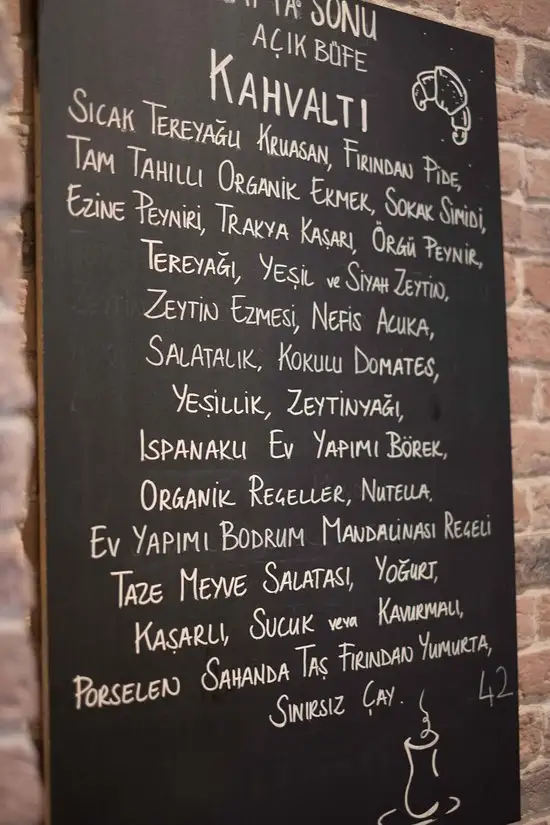 SONU
AÇIK BÜFE
KAHVALTI
SICAK TEREYAĞLI KRUASAN, FIRINDAN PİDE,
TAM TAHILLI ORGANİK EKMEK, SOKAK SİMİDİ,
EZİNE PEYNİRİ, TRAKYA KAŞARI, ÖRGÜ PEYNİR,
TEREYAĞI, YEŞİL ve SİYAH ZEYTİN,
ZEYTİN EZMESİ, NEFİS ACUKA,
SALATALIK, KOKULU DOMATES,
YEŞİLLİK, ZEYTİNYAĞI,
ISPANAKLI EV YAPIMI BÖREK,
ORGANİK REÇELLER, NUTELLA.
EV YAPIMI BODRUM MANDALİNASI REÇELİ
TAZE MEYVE SALATASI, YOĞURT,
KAŞARLI, SUCUK veya KAVURMALI,
PORSELEN SAHANDA TAŞ FIRINDAN YUMURTA,
SINIRSIZ ÇAY. 42